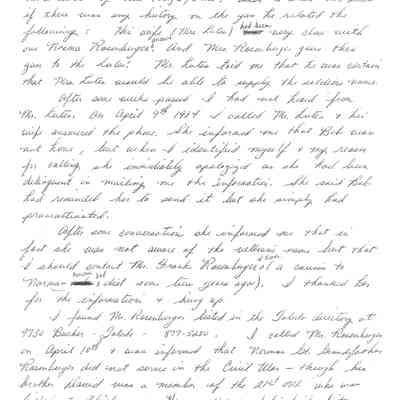 if there was any history on the gun he related the
following: His wife (Mrs. Luten) had been very close with
one Norma Rosenburger. And Mrs. Rosenburger gave the
gun to the Lutens. Mr. Luten told me that he was certain
that Mrs. Luten would be able to supply the soldiers name.
After some weeks passed & I had not heard from
Mr. Luten. On April 9th 1974 I called Mr. Luten & his
wife answered the phone. She informed me that Bob was
not home, but when I identified myself & my reason
for calling she immediately apologized as she had been
delinquent in mailing me the information. She said Bob
had reminded her to send it but she simply had
procrastinated.
After some conversation she informed me that in
fact she was not aware of the veterans name but that
I should contact Mr. Frank Rosenburger of Toledo (a cousin to
Norman died some years ago). I thanked her
for the information & hung up.
I found Mr. Rosenburger listed in the Toledo directory at
9730 Bucher - Toledo - 877-5250. I called Mr. Rosenburger
on April 10th & was informed that Norman's Grandfather
Rosenburger did not serve in the Civil War - though his
brother was a member of the 21st who was